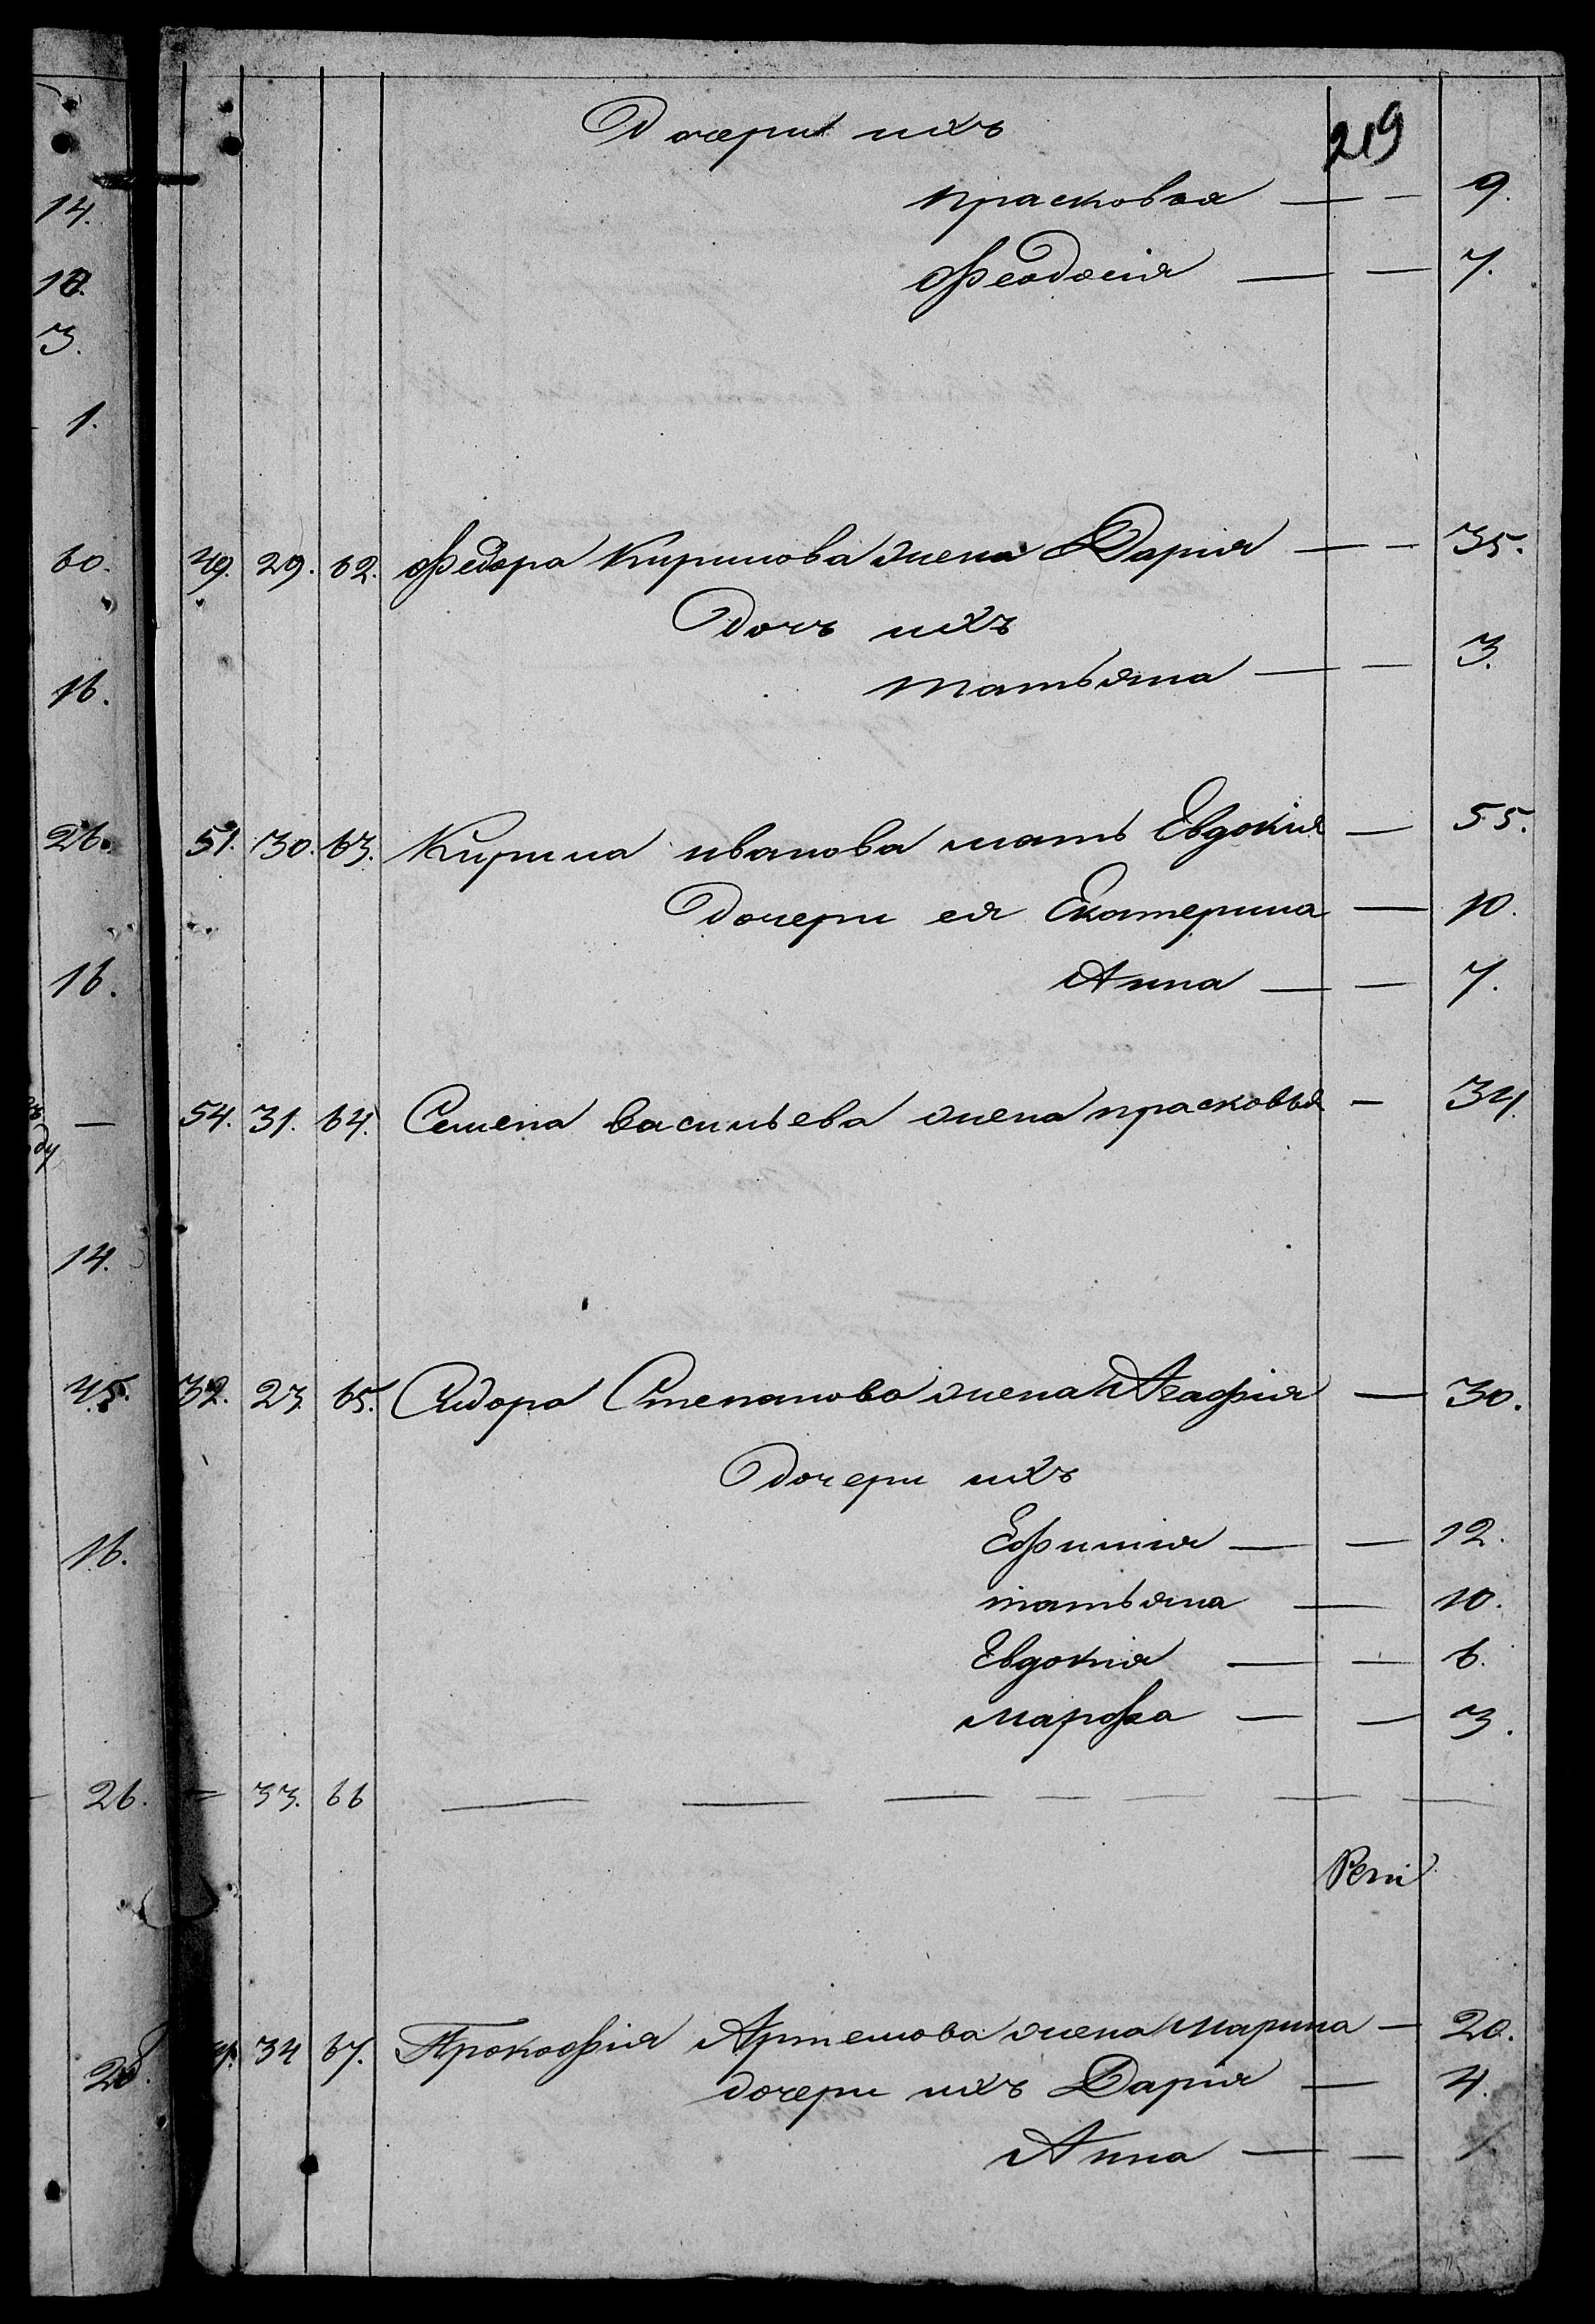 Дочери ихъ
219
Прасковья — — 9.
Феодосія — — 7.
49. 29. 62. Федора Кирилова жена Дарія — — 35.
Дочь ихъ
Татьяна — — 3.
51. 30. 63. Кирила Иванова мать Евдокія — 55.
Дочери ея Екатерина — 10.
Анна — — 7.
54. 31. 64. Семена Васильева жена Прасковья — 34
32. 23. 65. Сидора Степанова жена Агафія — 30.
Дочери ихъ
Ефимія — — 12.
Татьяна — 10.
Евдокія — — 6.
Марфа — — 3.
— 33. 66 — — — — — — —
34 67. Прокофія Артемова жена Марина — 20.
дочери ихъ Дарія — 4.
Анна — — 1
14.
10.
3.
1.
60.
16.
26.
16.
—
14.
45.
16.
26.
28.